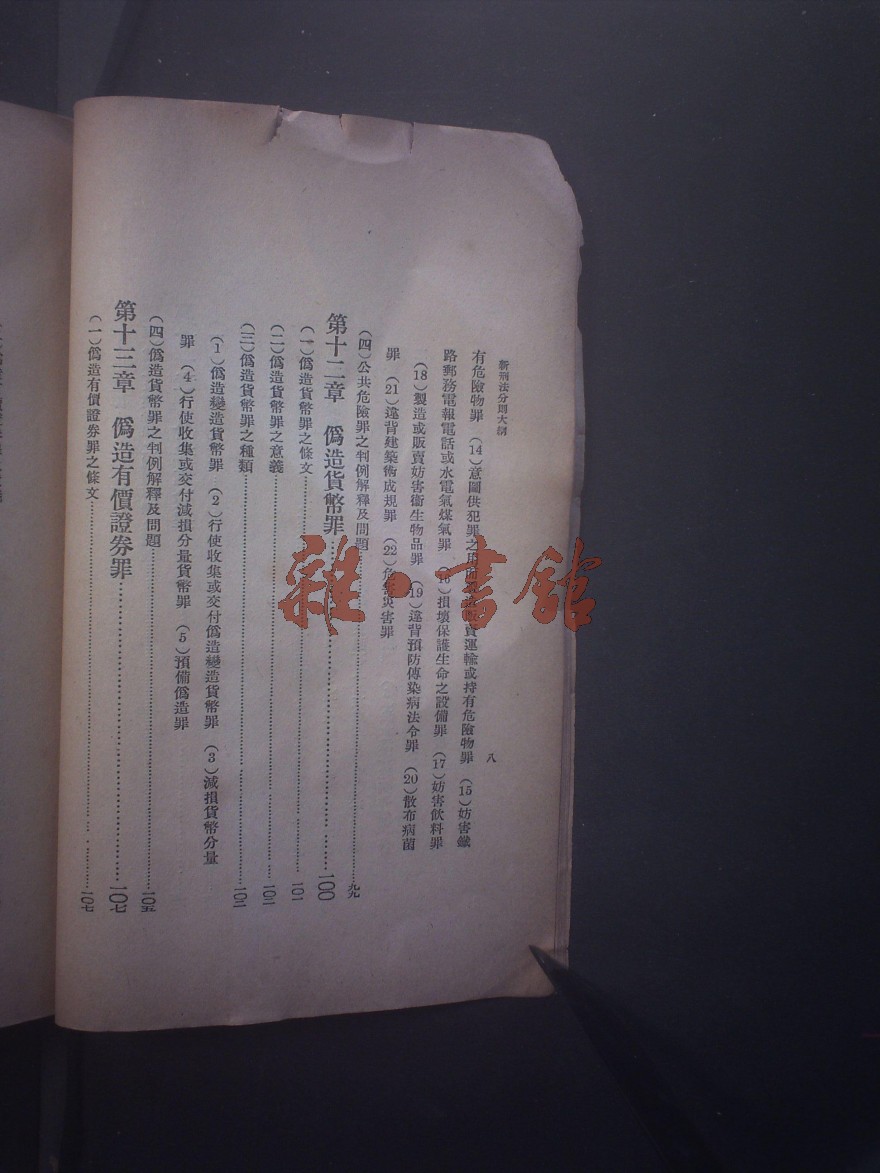 新刑法分則大綱
八
有危險物罪 (14)意圖供犯罪之用而 運輸或持有危險物罪 (15)妨害鐵
路郵務電報電話或水電氣煤氣罪 損壞保護生命之設備罪 (17)妨害飲料罪
(18)製造或販賣妨害衞生物品罪 (19)違背預防傳染病法令罪 (20)散布病菌
罪 (21)違背建築術成規罪 (22) 災害罪
(四)公共危險罪之判例解釋及問題……九九
第十二章 僞造貨幣罪……一〇〇
(一)僞造貨幣罪之條文……一〇一
(二)僞造貨幣罪之意義……一〇二
(三)僞造貨幣罪之種類……一〇三
(1)僞造變造貨幣罪 (2)行使收集或交付僞造變造貨幣罪 (3)減損貨幣分量
罪 (4)行使收集或交付減損分量貨幣罪 (5)預備僞造罪
(四)僞造貨幣罪之判例解釋及問題……一〇五
第十三章 僞造有價證券罪……一〇七
(一)僞造有價證券罪之條文……一〇七
雜·書館